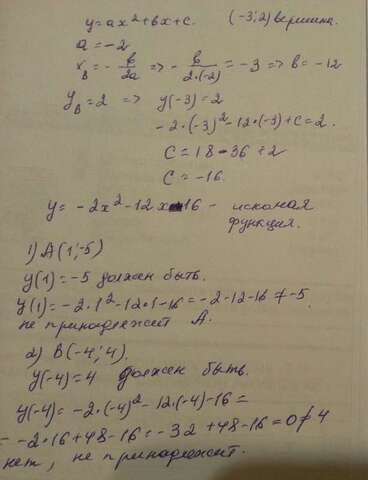 y = ax² + bx + c. (-3; 2) вершина.
a = -2
xв = - b/2a => - b/2·(-2) = -3 => b = -12
yв = 2 => y(-3) = 2
-2·(-3)² - 12·(-3) + c = 2.
c = 18 - 36 + 2
c = -16.
y = -2x² - 12x - 16 - искомая
функция.
1) A(1; -5)
y(1) = -5 должен быть.
y(1) = -2·1² - 12·1 - 16 = -2 - 12 - 16 ≠ -5.
не принадлежит A.
2) B(-4; 4).
y(-4) = 4 должен быть.
y(-4) = -2·(-4)² - 12·(-4) - 16 =
= -2·16 + 48 - 16 = -32 + 48 - 16 = 0 ≠ 4
нет, не принадлежит.